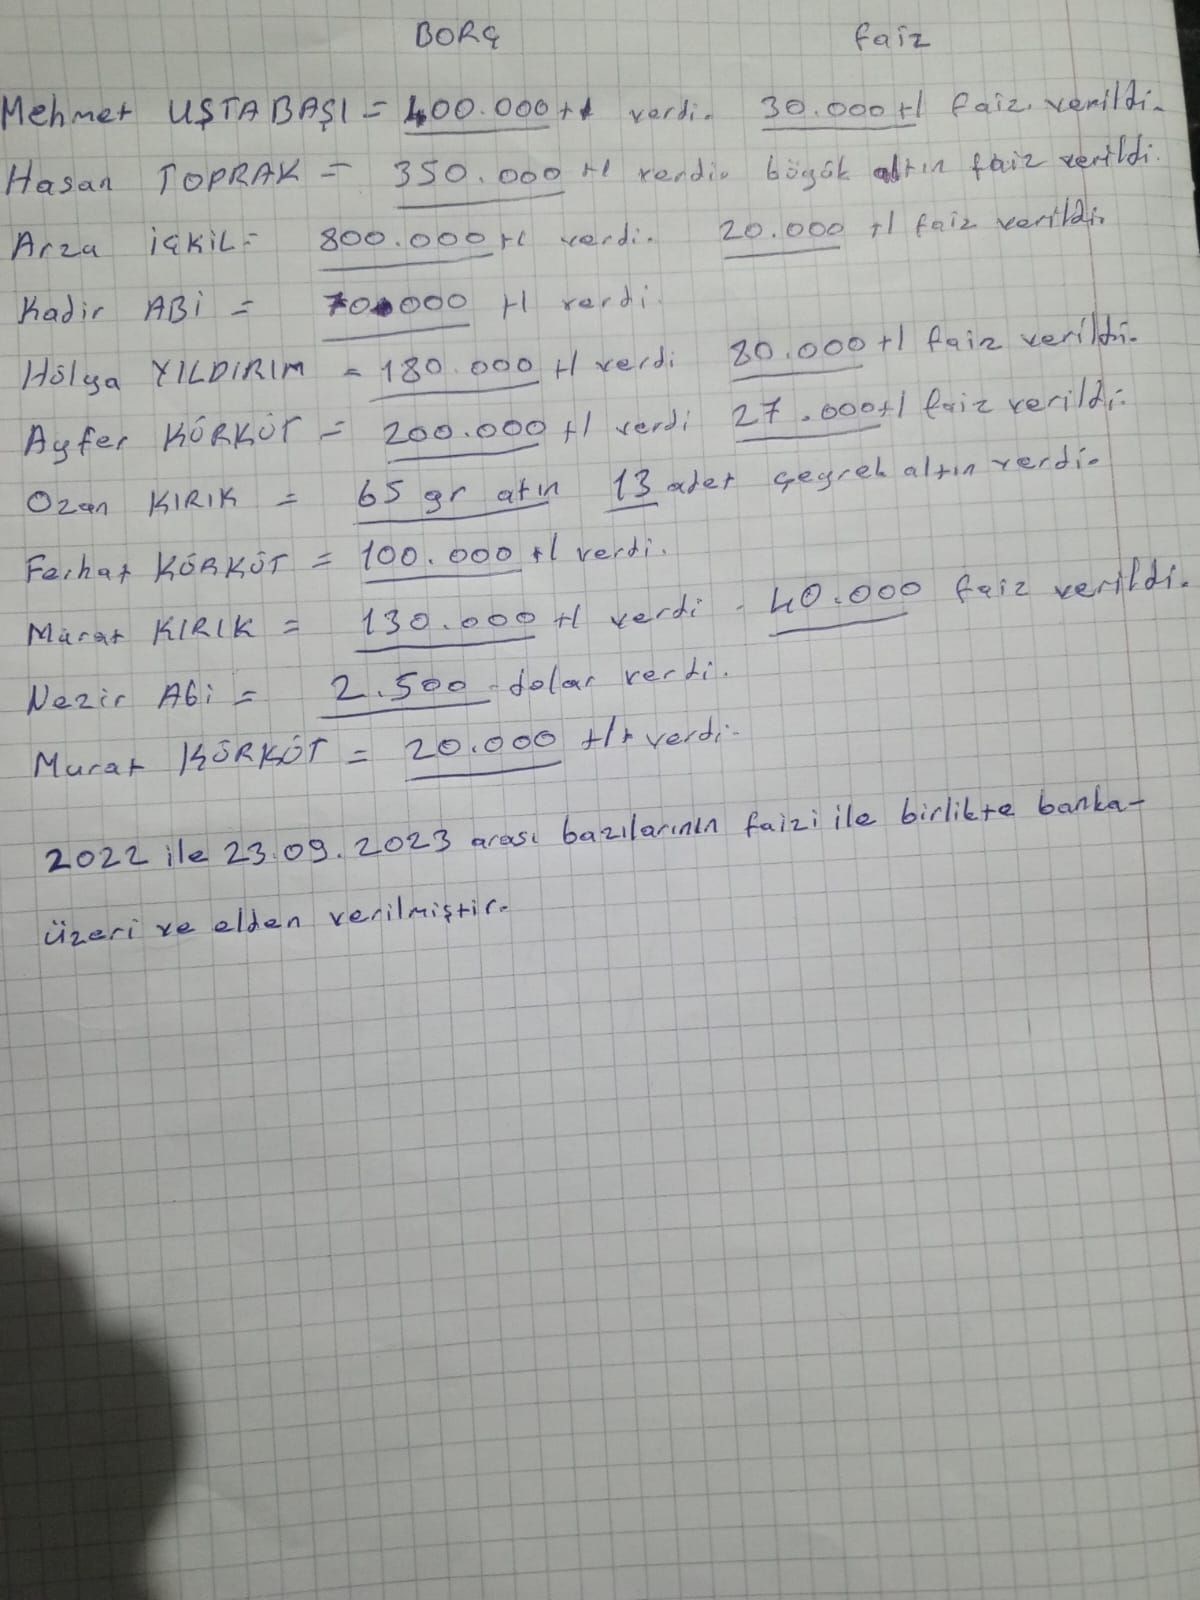 BORÇ faiz
Mehmet UŞTABAŞI = 400.000 tl verdi. 30.000 tl faiz verildi.
Hasan TOPRAK = 350.000 tl verdi. böyük altın faiz verildi.
Arza İÇKİL = 800.000 tl verdi. 20.000 tl faiz verildi.
Kadir ABİ = 70.000 tl verdi.
Hölya YILDIRIM = 180.000 tl verdi 80.000 tl faiz verildi.
Ayfer KÖRKÖT = 200.000 tl verdi 27.000 tl faiz verildi.
Ozan KIRIK = 65 gr atın 13 adet çeyrek altın verdi.
Ferhat KÖRKÖT = 100.000 tl verdi.
Mürat KIRIK = 130.000 tl verdi - 40.000 faiz verildi.
Nezir Abi = 2.500 dolar verdi.
Murat KÖRKÖT = 20.000 tlt verdi.
2022 ile 23.09.2023 arası bazılarının faizi ile birlikte banka-
üzeri ve elden verilmiştir.